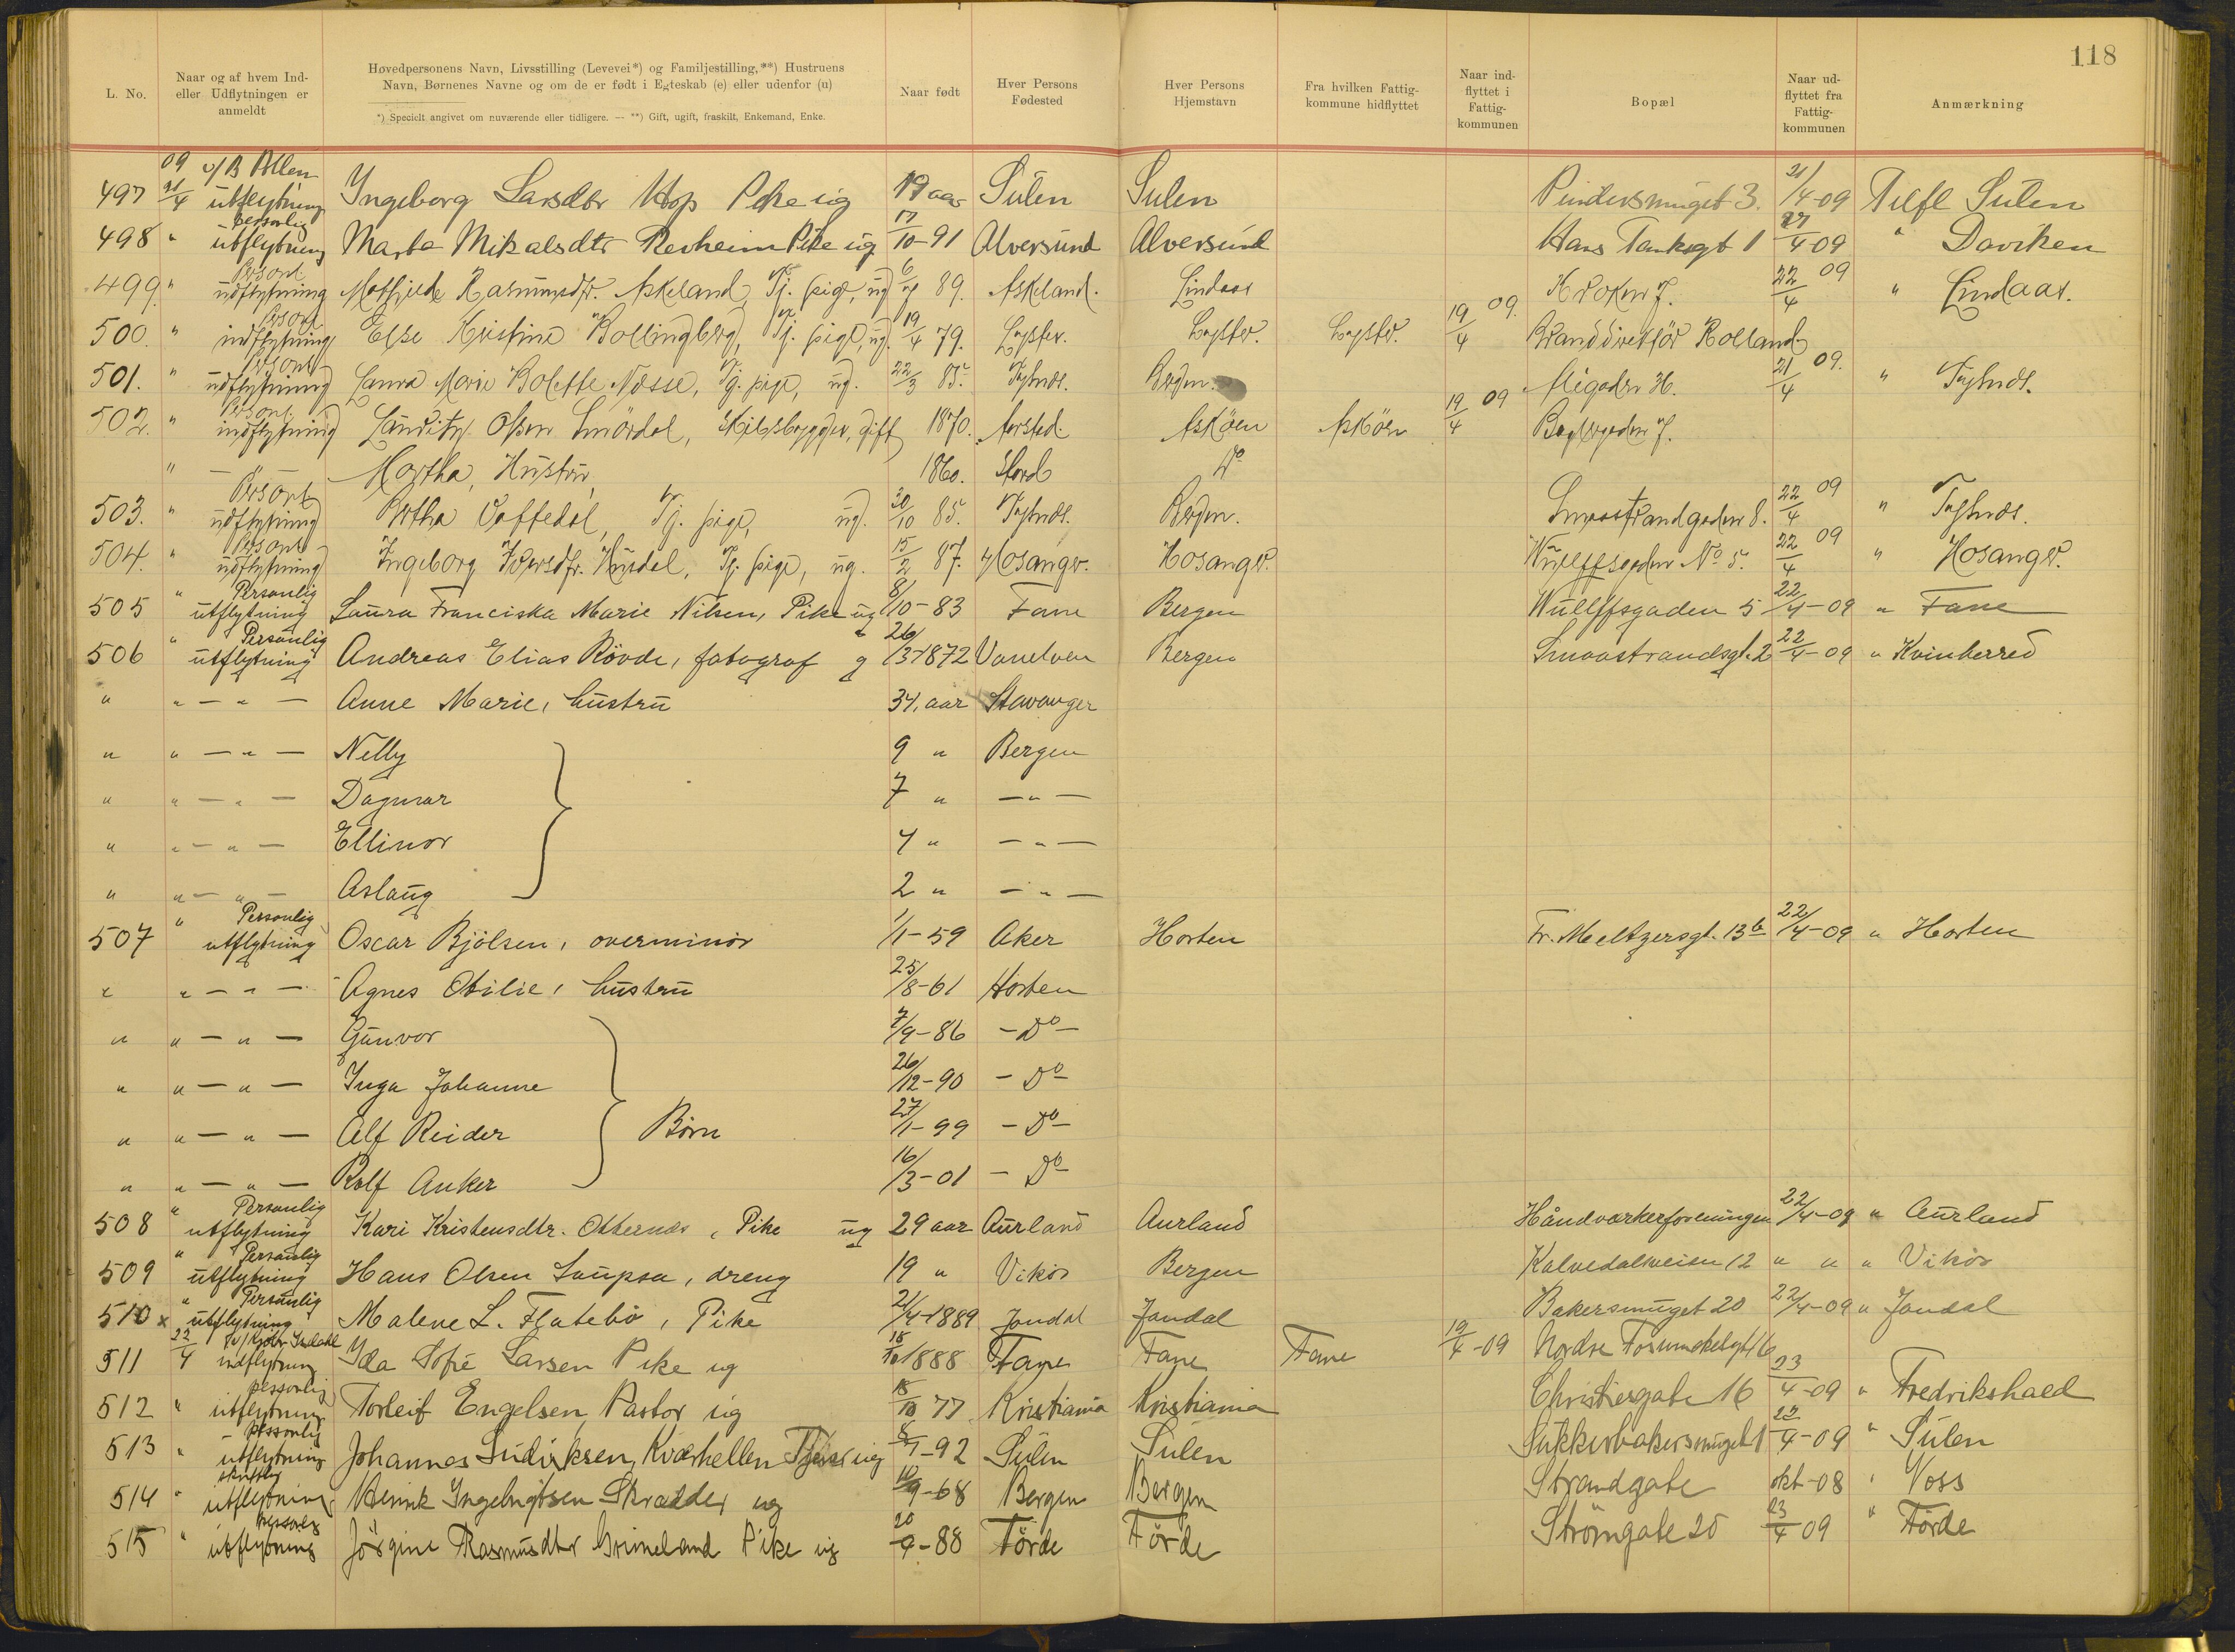 118
L. No.
Naar og af hvem Ind- eller Udflytningen er anmeldt
Høvedpersonens Navn, Livsstilling (Levevei*) og Familjestilling,**) Hustruens Navn, Børnenes Navne og om de er født i Egteskab (e) eller udenfor (u)
*) Specielt angivet om nuværende eller tidligere. — **) Gift, ugift, fraskilt, Enkemand, Enke.
Naar født
Hver Persons Fødested
Hver Persons Hjemstavn
Fra hvilken Fattigkommune hidflyttet
Naar indflyttet i Fattigkommunen
Bopæl
Naar udflyttet fra Fattigkommunen
Anmærkning
497 21/4 09 utflytning Ingeborg Larsdtr Hop Pike ug 19 aar Sulen Sulen Pindersmuget 3. 21/4-09 Tilfl Sulen
498 " personlig utflytning Marta Mikalsdtr Revheim Pike ug 17/10-91 Alversund Alversund Hans Tanksgt 1 27/4-09 " Daviken
499. " Personl. udflytning Mathilde Rasmusdtr. Askeland, Tj. pige, ug 89. Askeland. Lindaas 22/4 09 " Lindaas.
500. " Personl indflytning Else Kristine Bollingberg, Tj. pige, ug. 19/4 79. Lyster. Lyster. Lyster. 19/4 09. Branddirektör Rolland
501. " Personl udflytning Laura Marie Bolette Nesse, Tj. pige, ug. 22/3 85. Bergen. 21/4 09. "
502. " Personl. indflytning Olsen Smördal, gift 1870. Aarstad. Askøen Askøen 19/4 09
" — — Martha, Hustru, 1860. Stord Do
503. " Personl udflytning Bertha Toftedal, Tj. pige, ug. 30/10 85. Bergen. Smaastrandgaden 8. 22/4 09 "
504. " Personl udflytning Ingeborg Iversdtr. Husdal, Tj. pige, ug. 15/2 87. Hosanger. Hosanger. Wulffsgaden No 5. 22/4 09 " Hosanger.
505 " Personlig utflytning Laura Franciska Marie Nilsen, Pike ug 8/10-83 Fane Bergen Wullffsgaden 5 22/4-09 " Fane
506 " Personlig utflytning Andreas Elias Røvde, fotograf g 26/3-1872 Vanelven Bergen Smaastrandsgt. 2 22/4-09 " Kvinherred
" " — " — Anne Marie, hustru 34, aar Stavanger
" " — " — Nelly 9 " Bergen
" " — " — Dagmar 7 " — " —
" " — " — Ellinor 4 " — " —
" " — " — Aslaug 2 " — " —
507 " Personlig utflytning Oscar Bjölsen, overminör 1/1-59 Aker Horten Fr. Meltzersgt. 13b 22/4-09 " Horten
" " — " — Agnes Otilie, hustru 25/8-61 Horten
" " — " — Gunvor 7/9-86 — Do —
" " — " — Inga Johanne 26/12-90 — Do
" " — " — Alf Reider Børn 27/1-99 — Do
" " — " — Rolf Anker 16/3-01 — Do
508 " Personlig utflytning Kari Kristensdtr. Otternes, Pike ug 29 aar Aurland Aurland Håndværkerforeningen 22/4-09 " Aurland
509 " Personlig utflytning Hans Olsen Laupsa, dreng 19 " Vikör Bergen Kalvedalsveien 12 " " " Vikör
510 x " Personlig utflytning Malene L. Flatebö, Pike 21/4-1889 Jondal Jondal Bakersmuget 20 22/4-09 " Jondal
511 22/4 indflytning Ida Sofie Larsen Pike ug 18/10 1888 Fane Fane Fane 19/4-09 Nordre
512 " personlig utflytning Torleif Engelsen, Pastor ug 18/10 77 Kristiania Kristiania Christiesgate 16 23/4-09 " Fredrikshald
513 " personlig utflytning Johannes Kværhellen ug 8/7-92 Sulen Sulen Sukkerbakersmuget 1 22/4-09 " Sulen
514 " skriftlig utflytning Henrik Ingebrigtsen Skrædder ug 9-68 Bergen Bergen Strandgate okt-08 " Voss
515 " personlig utflytning Jörgine Rasmusdtr Grimeland Pike ug 20/9-88 Förde Förde Strömgate 25 23/4 09 " Förde